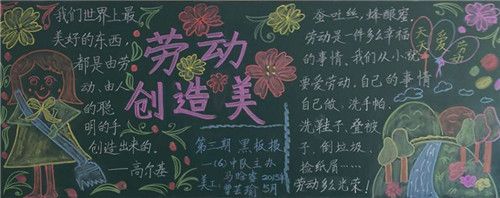 我们世界上最
美好的东西，
都是由劳
动、由人
的聪
明的手
创造出来的。
——高尔基
劳动
创造美
第三期 黑板报
一(6)中队主办
美工：
2015年
5月
蚕吐丝，蜂酿蜜。
劳动是一件多么幸福
的事情。我们从小就
要爱劳动。自己的事情
自己做、洗手帕、
洗鞋子、叠被
子、倒垃圾、
捡纸屑……
劳动多么光荣！
天天
爱
劳动